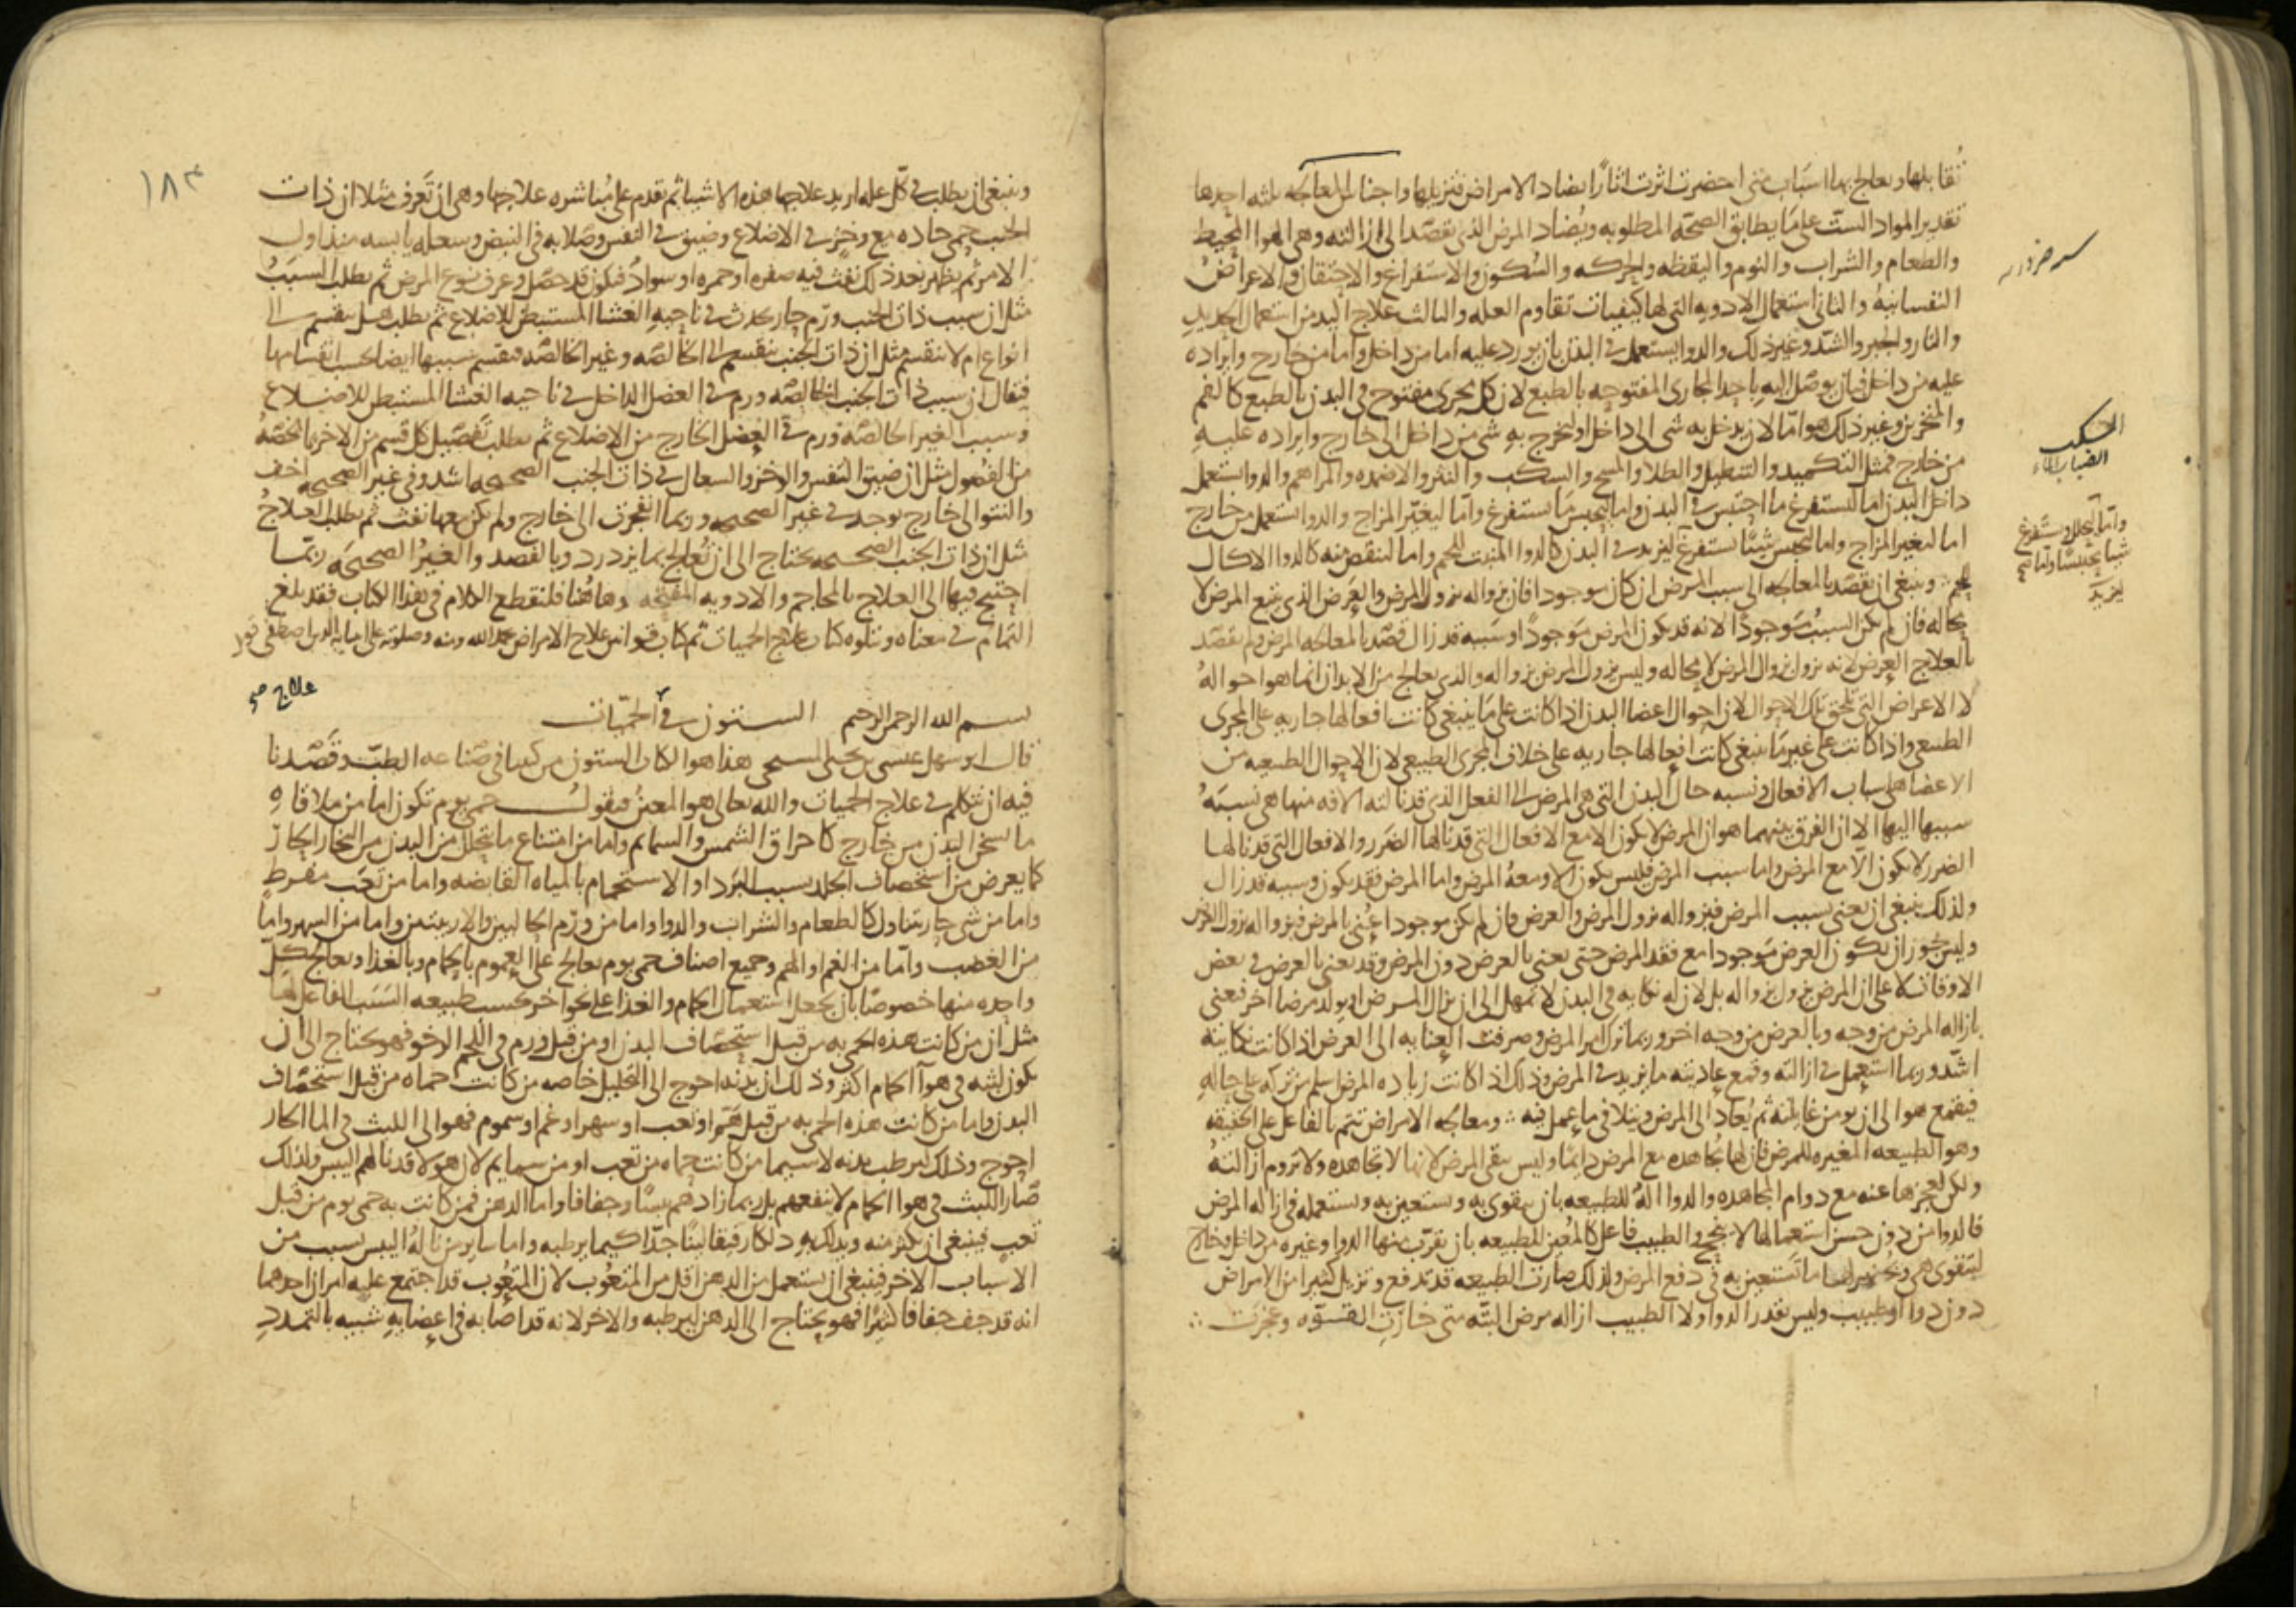 تقابلها ويعالج بها اسباب متى احضرت اثرت اثارًا يضاد الامراض فتزيلها واجناس المعالجه ثلثه احدها
تقدير المواد الست على ما يطابق الصحه المطلوبه ويضاد المرض الذى يقصد الى ازالته وهى الهوا المحيط
والطعام والشراب والنوم واليقظه والحركه والسكون والاستفراغ والاحتقان والاعراض
النفسانيه والثانى استعمال الادويه التى لها كيفيات تقاوم العله والثالث علاج اليد من استعمال الحديد
والنار والجبر والشد وغير ذلك والدوا يستعمل فى البدن بان يورد عليه اما من داخل واما من خارج وايراده
عليه من داخل فبان يوصل اليه باحد المجارى المفتوحه بالطبع لان كل مجرى مفتوح فى البدن بالطبع كالفم
والمنخرين وغير ذلك هو اما لان يدخل به شى الى داخل او يخرج به شى من داخل الى خارج وايراده عليه
من خارج فمثل التكميد والتنطيل والطلا والمسح والسكب والنثر والاضمده والمراهم والدوا يستعمل
داخل البدن اما ليستفرغ ما احتبس فى البدن واما ليحبس ما يستفرغ واما ليغير المزاج والدوا يستعمل من خارج
اما ليغير المزاج واما ليحبس شيئًا يستفرغ ليزيد فى البدن كالدوا المنبت للحم واما لينقص منه كالدوا الاكال
للحم وينبغى ان يقصد بالمعالجه الى سبب المرض ان كان موجودا فان بزواله يزول المرض والعرض الذى يتبع المرض لا
محاله فان لم يكن السبب موجودًا لانه قد يكون المرض موجودًا وسببه قد زال قصد بالمعالجه المرض ولم يقصد
بالعلاج العرض لانه يزول بزوال المرض لا محاله وليس يزول المرض بزواله والذى يعالج من الابدان انما هو احواله
لا الاعراض التى تلحق تلك الاحوال لان احوال اعضا البدن اذا كانت على ما ينبغى كانت افعالها جاريه على المجرى
الطبيعى واذا كانت على غير ما ينبغى كانت افعالها جاريه على خلاف المجرى الطبيعى لان الاحوال الطبيعيه من
الاعضا هى اسباب الافعال ونسبه حال البدن التى هى المرض الى الفعل الذى قد نالته الافه منها هى نسبة
سببها اليها الا ان الفرق بينهما هو ان المرض لا يكون الا مع الافعال التى قد نالها الضرر والافعال التى قد نالها
الضرر لا يكون الا مع المرض واما سبب المرض فليس يكون الا ومعه المرض واما المرض فقد يكون وسببه قد زال
ولذلك ينبغى ان يعنى بسبب المرض فبزواله يزول المرض والعرض فان لم يكن موجودا عُنى بالمرض فبزواله يزول العرض
وليس يجوز ان يكون العرض موجودا مع فقد المرض حتى يعنى بالعرض دون المرض وقد يعنى بالعرض فى بعض
الاوقات لا على ان المرض يزول بزواله بل لان له نكايه فى البدن لا تمهل الى ان يزال المرض او يولد مرضا اخر فعنى
بازاله المرض من وجه وبالعرض من وجه اخر وربما ترك امر المرض وصرفت العنايه الى العرض اذا كانت نكايته
اشد وربما استعمل فى ازالته وقمع عاديته ما يزيد فى المرض وذلك اذا كانت زياده المرض اسلم من تركه على حاله
فيقمع هو الى ان يومن غايلته ثم يُعاد الى المرض ويتلافى ما عمل فيه ومعالجه الامراض تتم بالفاعل على الحقيقه
وهو الطبيعه المغيره للمرض فان لها مجاهده مع المرض دايمًا وليس يبقى المرض لانها لا تجاهده ولا تروم ازالته
ولكن لعجزها عنه مع دوام المجاهده والدوا اله للطبيعه بان يتقوى به ويستعين به ويستعمله فى ازاله المرض
فالدوا من دون حسن استعمالها لا ينجح والطبيب فاعل كالمُعين للطبيعه بان يقرّب منها الدوا وغيره من داخل وخارج
لتتقوى هى ويُحضر لها ما تستعين به فى دفع المرض ولذلك صارت الطبيعه قد تدفع وتزيل كثيرا من الامراض
دون دوا او طبيب وليس يقدر الدوا ولا الطبيب ازاله مرض البته متى خارت القوه وعجزت
السكب
انصباب الماء
واما ليحلل ويستفرغ
شيا محتبسًا واما
ليزيد
١٨٣
وينبغى ان يطلب فى كل عله اريد علاجها هذه الاشيا ثم يقدم على مباشره علاجها وهى ان تَعرف مثلا ان ذات
الجنب حمى حاده مع وخز فى الاضلاع وضيق فى النفس وصلابه فى النبض وسعله يابسه منذ اول
الامر ثم يظهر بعد ذلك نفث فيه صفره او حمره او سواد فيكون قد حصل وعرف نوع المرض ثم يطلب السبب
مثل ان سبب ذات الجنب ورم حار يحدث فى ناحيه الغشا المستبطن للاضلاع ثم يطلب هل ينقسم الى
انواع ام لا ينقسم مثل ان ذات الجنب ينقسم الى الخالصه وغير الخالصه وينقسم سببها ايضا بحسب انقسامها
فيقال ان سبب ذات الجنب الخالصه ورم فى العضل الداخل فى ناحيه الغشا المستبطن للاضلاع
وسبب الغير الخالصه ورم فى العضل الخارج من الاضلاع ثم يطلب تفصيل كل قسم من الاخر بما يخصه
من الفصول مثل ان ضيق النفس والوخز والسعال فى ذات الجنب الصحيحه اشد وفى غير الصحيحه اخف
والنتو الى خارج يوجد فى غير الصحيحه وربما انفجرت الى خارج ولم يكن معها نفث ثم يطلب العلاج
مثل ان ذات الجنب الصحيحه يحتاج الى ان تُعالج بما يزدرد وبالفصد والغير الصحيحه ربما
احتيج فيها الى العلاج بالمحاجم والادويه المقيحه وهاهنا فلنقطع الكلام فى هذا الكتاب فقد بلغ
التمام فى معناه ونتلوه كتاب علاج الحميات تم كتاب قوانين علاج الامراض بحمد الله ومنه وصلوته على انبيائه الذين اصطفى
علاج
بسم الله الرحمن الرحيم الستون فى الحميات
قال ابو سهل عيسى بن يحيى المسيحى هذا هو الكتاب الستون من كتبنا فى صناعه الطب وقصدنا
فيه ان نتكلم فى علاج الحميات والله تعالى هو المعين فيقول حمى يوم تكون اما من ملاقاه
ما يسخن البدن من خارج كاحراق الشمس والسمايم واما من امتناع ما يتحلل من البدن من البخار الحار
كما يعرض من استحصاف الجلد بسبب البرد او الاستحمام بالمياه القابضه واما من تعب مفرط
واما من شى حار يتناول كالطعام والشراب والدوا واما من ورم الحالبين والاربيتين واما من السهر واما
من الغضب واما من الغم او الهم وجميع اصناف حمى يوم يعالج على العموم بالحمام وبالغذا ويعالج كل
واحده منها خصوصًا بان يجعل استعمال الحمام والغذا على نحو اخر بحسب طبيعه السبب الفاعل لها
مثل ان من كانت هذه الحمى به من قبل استحصاف البدن او من قبل ورم فى اللحم الرخو فهو يحتاج الى ان
يكون لبثه فى هوا الحمام اكثر وذلك ان بدنه احوج الى التحليل خاصه من كانت حماه من قبل استحصاف
البدن واما من كانت هذه الحمى به من قبل هم او تعب او سهر او غم او سموم فهو الى اللبث فى الما الحار
احوج وذلك ليرطب بدنه لا سيما من كانت حماه من تعب او من سمايم لان هولا قد نالهم اليبس ولذلك
صار اللبث فى هوا الحمام لا ينفعهم بل ربما زادهم يبسًا وجفافا واما الدهن فمن كانت به حمى يوم من قبل
تعب فينبغى ان يكثر منه ويدلك به دلكا رفيقا لينًا جدًا كيما يرطبه واما ساير من ناله اليبس بسبب من
الاسباب الاخر فينبغى ان يستعمل من الدهن اقل من المتعوب لان المتعوب قد اجتمع عليه امران احدهما
انه قد جف جفافا كثيرًا فهو يحتاج الى الدهن ليرطبه والاخر لانه قد اصابه فى اعصابه شبيه بالتمدد